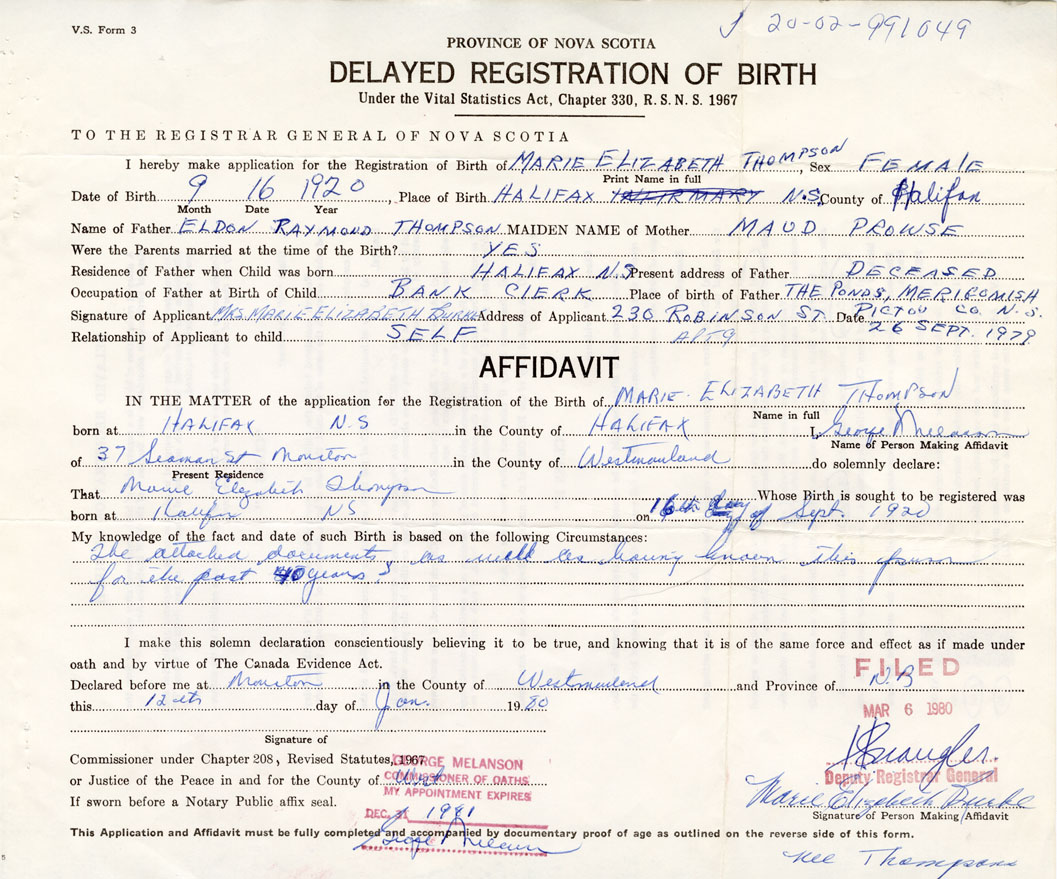 V.S. Form 3
20-02-991049
PROVINCE OF NOVA SCOTIA
DELAYED REGISTRATION OF BIRTH
Under the Vital Statistics Act, Chapter 330, R.S.N.S. 1967
TO THE REGISTRAR GENERAL OF NOVA SCOTIA
I hereby make application for the Registration of Birth of MARIE ELIZABETH THOMPSON, Sex FEMALE
Print Name in full
Date of Birth 9 16 1920, Place of Birth HALIFAX N.S. County of Halifax
Month Date Year
Name of Father ELDON RAYMOND THOMPSON MAIDEN NAME of Mother MAUD PROWSE
Were the Parents married at the time of the Birth? YES
Residence of Father when Child was born HALIFAX N.S Present address of Father DECEASED
Occupation of Father at Birth of Child BANK CLERK Place of birth of Father THE PONDS, MERIGOMISH
PICTOU CO. N.S.
Signature of Applicant MRS MARIE ELIZABETH BURKE Address of Applicant 230 ROBINSON ST. Date 26 SEPT. 1979
Relationship of Applicant to child SELF APT 9
AFFIDAVIT
IN THE MATTER of the application for the Registration of the Birth of MARIE ELIZABETH THOMPSON
Name in full
born at HALIFAX N S in the County of HALIFAX I, George Melanson
Name of Person Making Affidavit
of 37 Seaman St Moncton in the County of Westmorland do solemnly declare:
Present Residence
That Marie Elizabeth Thompson Whose Birth is sought to be registered was
born at Halifax NS on 16th day of Sept. 1920
My knowledge of the fact and date of such Birth is based on the following Circumstances:
The attached documents as well as having known this person
for the past 40 years
I make this solemn declaration conscientiously believing it to be true, and knowing that it is of the same force and effect as if made under
oath and by virtue of The Canada Evidence Act.
FILED
Declared before me at Moncton in the County of Westmorland and Province of N.B
this 12th day of Jan. 1980
MAR 6 1980
Signature of
Commissioner under Chapter 208, Revised Statutes, 1967
GEORGE MELANSON
or Justice of the Peace in and for the County of
COMMISSIONER OF OATHS
Deputy Registrar General
MY APPOINTMENT EXPIRES
If sworn before a Notary Public affix seal.
Marie Elizabeth Burke
DEC. 31 1981
Signature of Person Making Affidavit
This Application and Affidavit must be fully completed and accompanied by documentary proof of age as outlined on the reverse side of this form.
George Melanson
nee Thompson